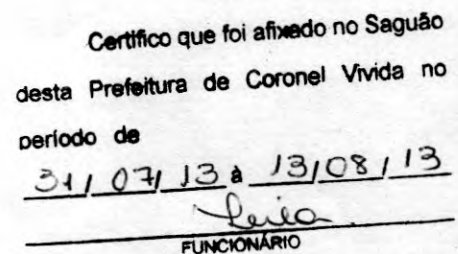 Certifico que foi afixado no Saguão
desta Prefeitura de Coronel Vivida no
período de
31/ 07/ 13 à 13/08/13
Leila
FUNCIONÁRIO